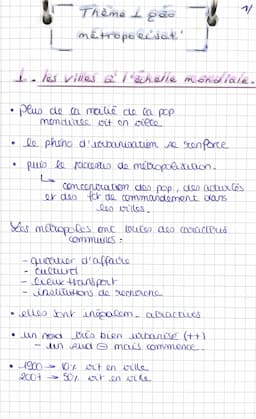 1/
Thème 1 géo
métropolisat°
1 - les villes à l'échelle mondiale.
• Plus de la moitié de la pop
mondiale vit en ville
• le phéno d'urbanisation se renforce
• puis le processus de métropolisation.
↳ concentration des pop, des activités
et des fct de commandement dans
les villes.
Les métropoles ont toutes des caractères
communs :
- quartier d'affaire
- culturel
- lieux transport
- institutions de recherche
• elles sont inégalem. attractives
• un nord très bien urbanisé (++)
- un sud ⊖ mais commence.
• 1900 → 10% vit en ville
2007 → 50% vit en ville